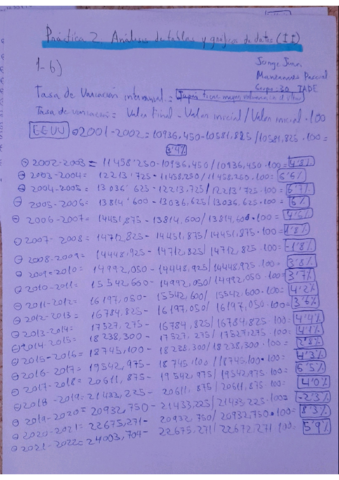 Práctica 2 Análisis de tablas y gráfico de datos (II)
Jorge Juan
Grupo 30 IADE
1-b)
Tasa de Variación interanual =
Tasa de variación = Valor final - Valor inicial / Valor inicial · 100
EEUU 2001-2002 = 10936,450 - 10581,825 / 10581,825 · 100 =
3'4%
2002-2003 = 11458,250 - 10936,450 / 10936,450 · 100 = 4'8%
2003-2004 = 12213,725 - 11458,250 / 11458,250 · 100 = 6'6%
2004-2005 = 13036,625 - 12213,725 / 12213,725 · 100 = 6'7%
2005-2006 = 13814,600 - 13036,625 / 13036,625 · 100 = 6%
2006-2007 = 14451,875 - 13814,600 / 13814,600 · 100 = 4'6%
2007-2008 = 14712,825 - 14451,875 / 14451,875 · 100 = 1'8%
2008-2009 = 14448,925 - 14712,825 / 14712,825 · 100 = -1'8%
2009-2010 = 14992,050 - 14448,925 / 14448,925 · 100 = 3'8%
2010-2011 = 15542,600 - 14992,050 / 14992,050 · 100 = 3'7%
2011-2012 = 16197,050 - 15542,600 / 15542,600 · 100 = 4'2%
2012-2013 = 16784,825 - 16197,050 / 16197,050 · 100 = 3'6%
2013-2014 = 17527,275 - 16784,825 / 16784,825 · 100 = 4'4%
2014-2015 = 18238,300 - 17527,275 / 17527,275 · 100 =
2015-2016 = 18745,100 - 18238,300 / 18238,300 · 100 =
2016-2017 = 19542,975 - 18745,100 / 18745,100 · 100 = 4'3%
2017-2018 = 20611,875 - 19542,975 / 19542,975 · 100 = 5'5%
2018-2019 = 21433,225 - 20611,875 / 20611,875 · 100 = 4'0%
2019-2020 = 20932,750 - 21433,225 / 21433,225 · 100 = -2'3%
2020-2021 = 22675,271 - 20932,750 / 20932,750 · 100 = 8'3%
2021-2022 = 24003,709 - 22675,271 / 22672,271 · 100 = 5'9%